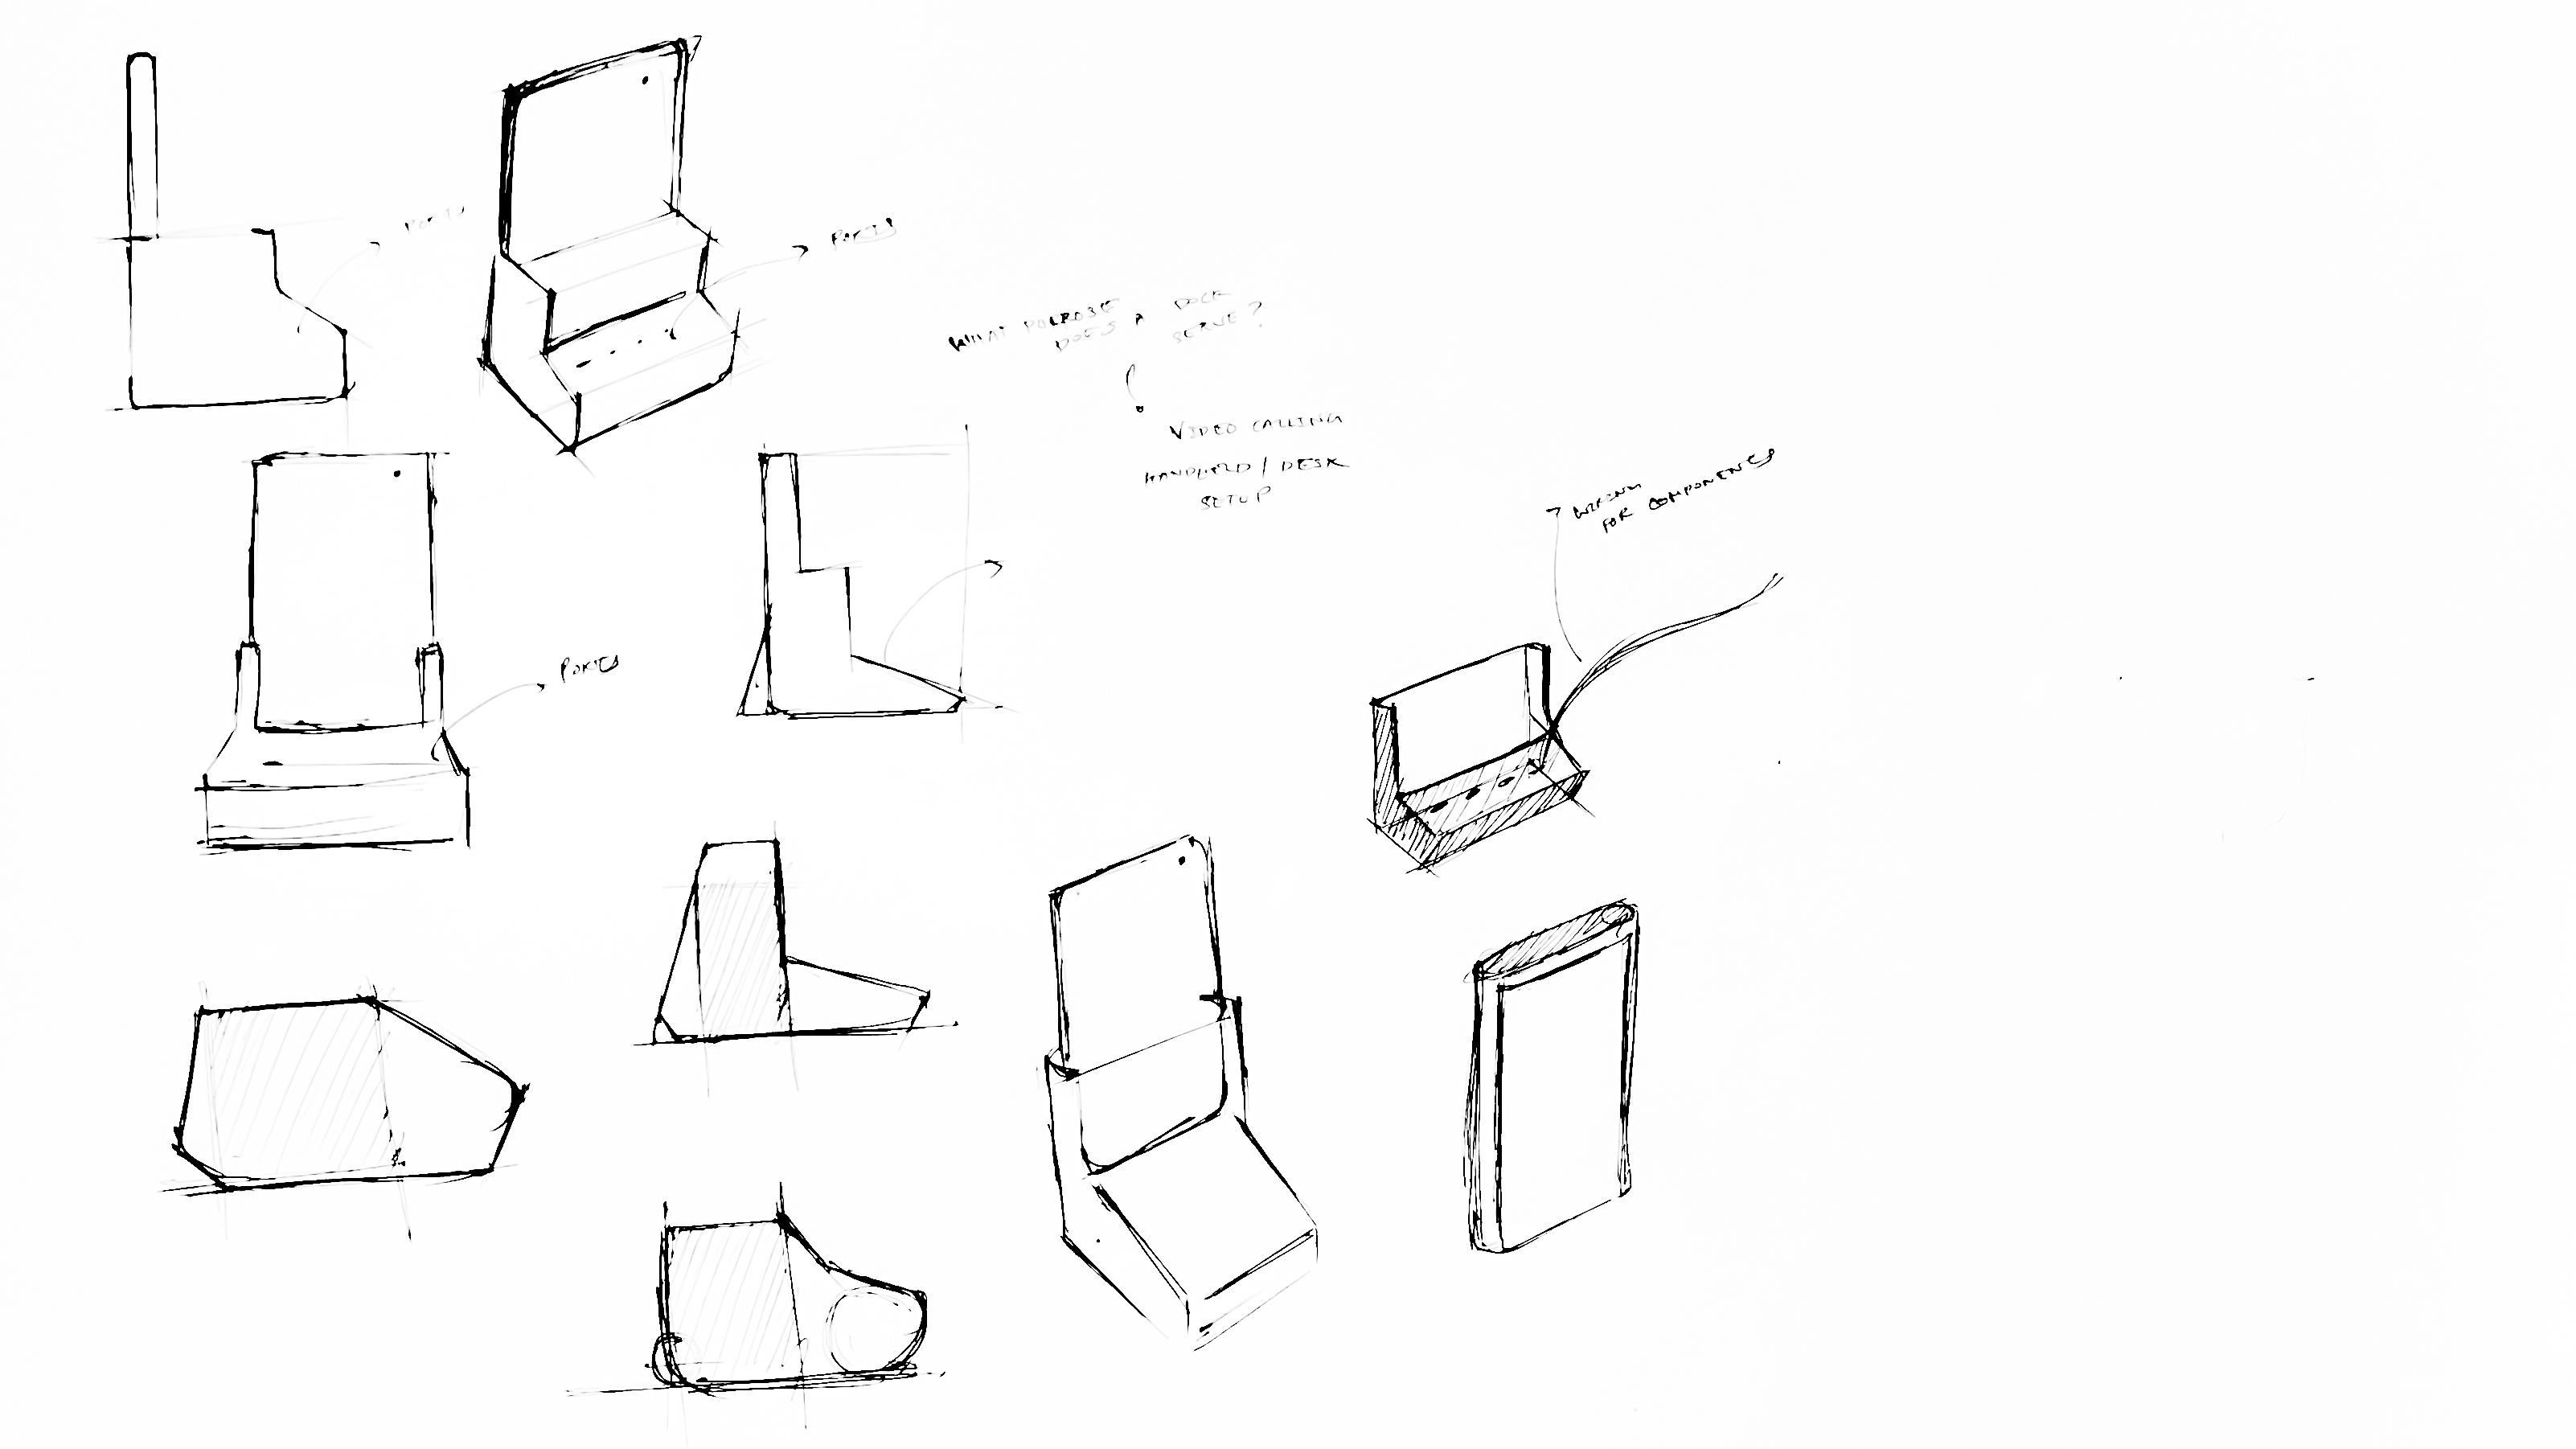 PORTS
PORTS
WHAT PURPOSE
DOES A DOCK
SERVE?
VIDEO CALLING
HANDHELD / DESK
SETUP
WIRING
FOR COMPONENTS
PORTS